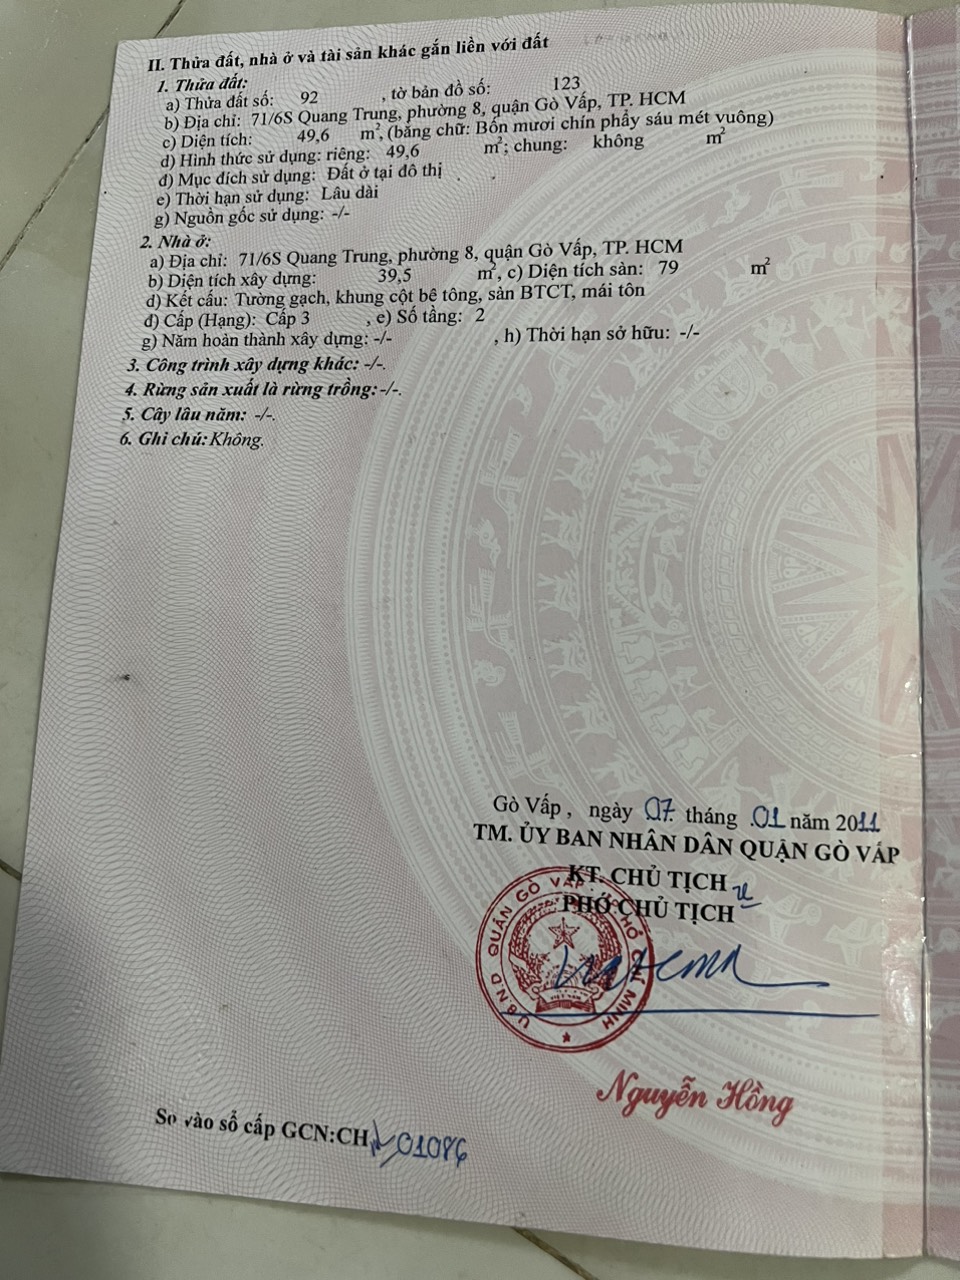 II. Thửa đất, nhà ở và tài sản khác gắn liền với đất
1. Thửa đất:
a) Thửa đất số: 92 , tờ bản đồ số: 123
b) Địa chỉ: 71/6S Quang Trung, phường 8, quận Gò Vấp, TP. HCM
c) Diện tích: 49,6 m², (bằng chữ: Bốn mươi chín phẩy sáu mét vuông)
d) Hình thức sử dụng: riêng: 49,6 m²; chung: không m²
đ) Mục đích sử dụng: Đất ở tại đô thị
e) Thời hạn sử dụng: Lâu dài
g) Nguồn gốc sử dụng: -/-
2. Nhà ở:
a) Địa chỉ: 71/6S Quang Trung, phường 8, quận Gò Vấp, TP. HCM
b) Diện tích xây dựng: 39,5 m², c) Diện tích sàn: 79 m²
d) Kết cấu: Tường gạch, khung cột bê tông, sàn BTCT, mái tôn
đ) Cấp (Hạng): Cấp 3 , e) Số tầng: 2
g) Năm hoàn thành xây dựng: -/- , h) Thời hạn sở hữu: -/-
3. Công trình xây dựng khác: -/-.
4. Rừng sản xuất là rừng trồng: -/-.
5. Cây lâu năm: -/-.
6. Ghi chú: Không.
Gò Vấp , ngày 07 tháng 01 năm 2011
TM. ỦY BAN NHÂN DÂN QUẬN GÒ VẤP
KT. CHỦ TỊCH
PHÓ CHỦ TỊCH
U.B.N.D QUẬN GÒ VẤP HỒ CHÍ MINH
VIỆT NAM
Nguyễn Hồng
Số vào sổ cấp GCN:CH 01086